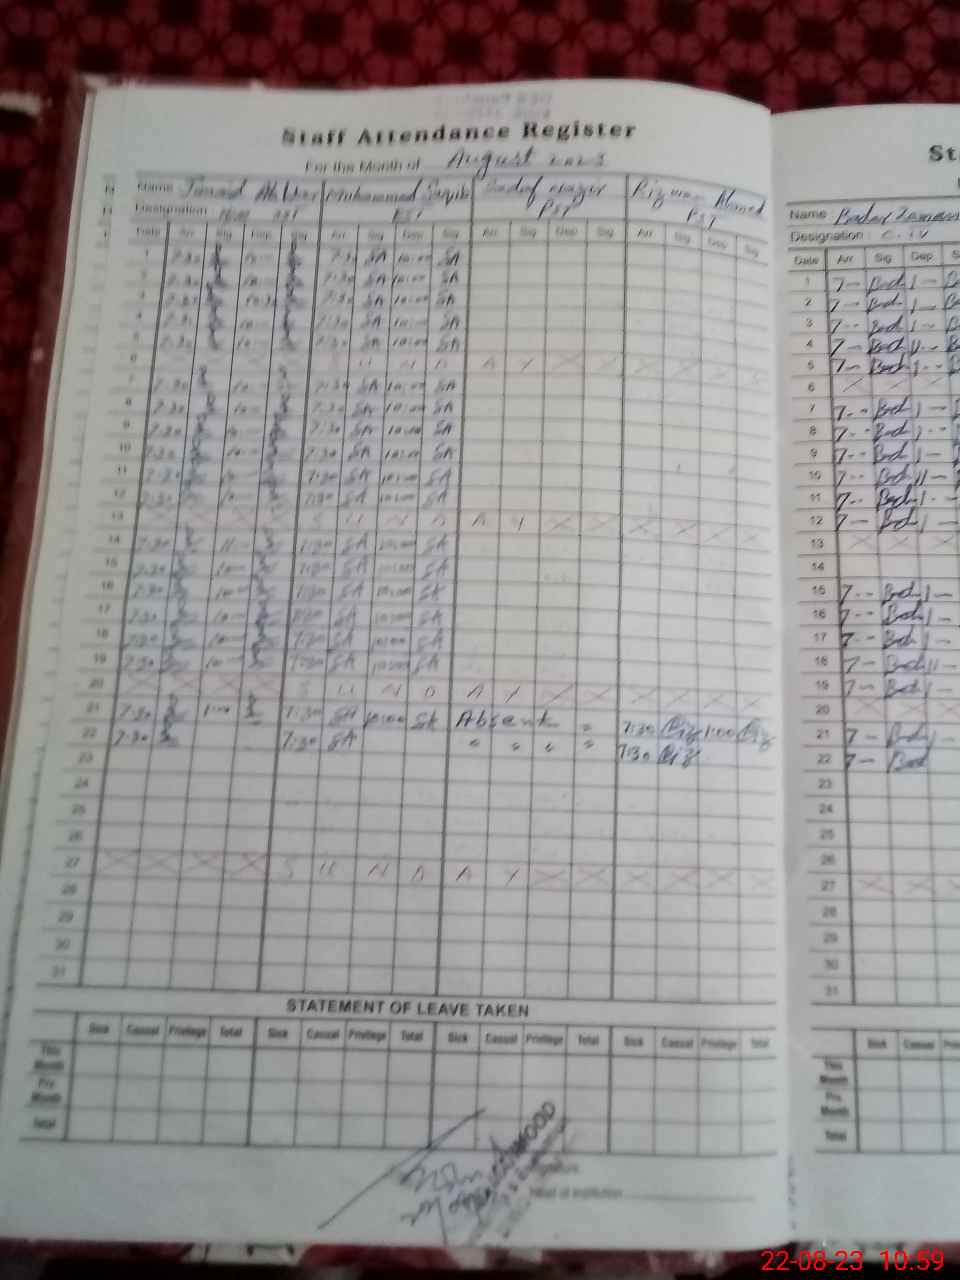 Staff Attendance Register
For the Month of August 2023
Name Muhammad Saqib Sadaf Rizwan Ahmed
Designation PST PST PST
Date Arr Sig Dep Sig Arr Sig Dep Sig Arr Sig Dep Sig Arr Sig Dep Sig
1 7:30 10— 7:30 SA 10:00 SA
2 7:30 10— 7:30 SA 10:00 SA
3 7:30 7:30 SA 10:00 SA
4 7:30 10— 7:30 SA 10:00 SA
5 7:30 10— 7:30 SA 10:00 SA
6 S U N D A Y
7 7:30 10— 7:30 SA 10:00 SA
8 7:30 10— 7:30 SA 10:00 SA
9 7:30 10— 7:30 SA 10:00 SA
10 7:30 10— 7:30 SA 10:00 SA
11 7:30 10— 7:30 SA 10:00 SA
12 7:30 10— 7:30 SA 10:00 SA
13 S U N D A Y
14 7:30 7:30 SA 10:00 SA
15 7:30 10— 7:30 SA 10:00 SA
16 7:30 10— 7:30 SA 10:00 SA
17 7:30 10— 7:30 SA 10:00 SA
18 7:30 10— 7:30 SA 10:00 SA
19 7:30 10— 7:30 SA 10:00 SA
20 S U N D A Y
21 7:30 1:00 7:30 SA 10:00 SA Absent = 7:30 Riz 1:00 Riz
22 7:30 7:30 SA " " " " 7:30 Riz
23
24
25
26
27 S U N D A Y
28
29
30
31
STATEMENT OF LEAVE TAKEN
Sick Casual Privilege Total Sick Casual Privilege Total Sick Casual Privilege Total Sick Casual Privilege Total
This Month
Pre Month
Total
Head of Institution
St
Name Badar Zaman
Designation
Date Arr Sig Dep S
1 7-- Bad 1--
2 7-- Bad 1--
3 7-- Bad 1--
4 7-- Bad 11--
5 7-- Bad 1--
6
7 7-- Bad 1--
8 7-- Bad 1--
9 7-- Bad 1--
10 7-- Bad 11--
11 7-- Bad 1--
12 7-- Bad 1--
13
14
15 7-- Bad 1--
16 7-- Bad 1--
17 7-- Bad 1--
18 7-- Bad 11--
19 7-- Bad 1--
20
21 7-- Bad 1--
22 7-- Bad
23
24
25
26
27
28
29
30
31
Sick Casual
This Month
Pre Month
Total
22-08-23 10:59